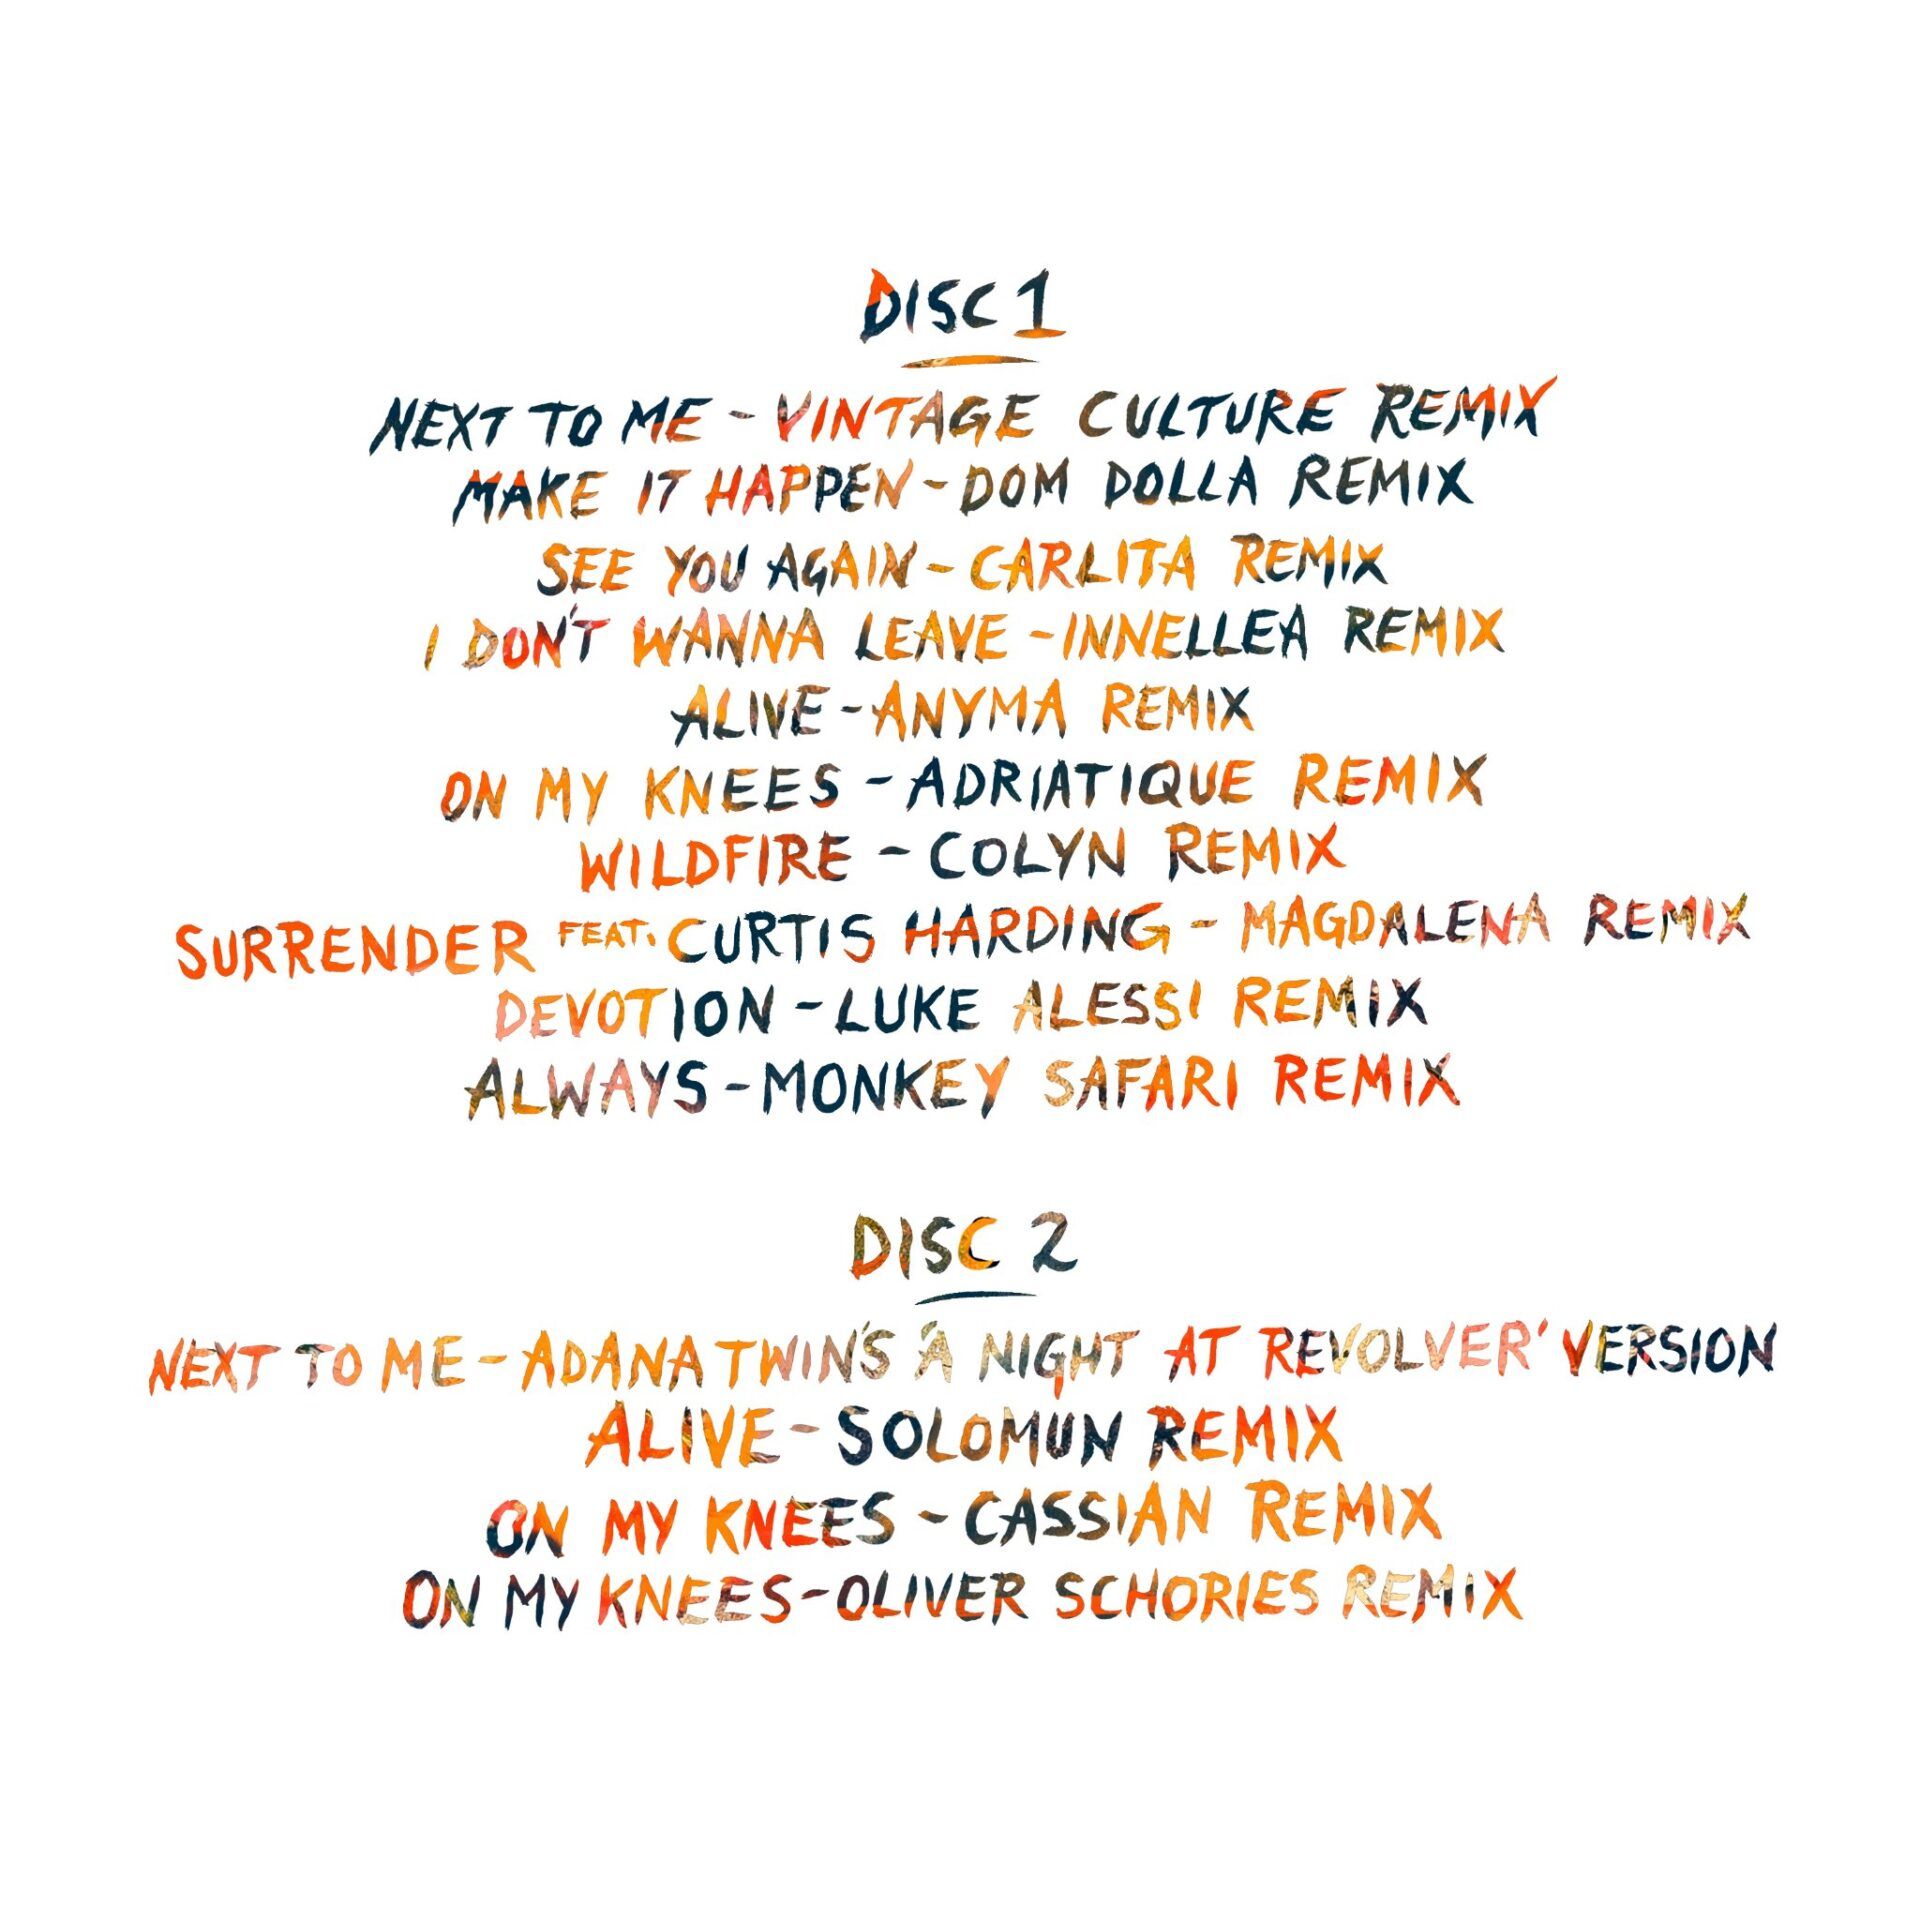 DISC 1
NEXT TO ME - VINTAGE CULTURE REMIX
MAKE IT HAPPEN - DOM DOLLA REMIX
SEE YOU AGAIN - CARLITA REMIX
I DON'T WANNA LEAVE - INNELLEA REMIX
ALIVE - ANYMA REMIX
ON MY KNEES - ADRIATIQUE REMIX
WILDFIRE - COLYN REMIX
SURRENDER FEAT. CURTIS HARDING - MAGDALENA REMIX
DEVOTION - LUKE ALESSI REMIX
ALWAYS - MONKEY SAFARI REMIX
DISC 2
NEXT TO ME - ADANA TWIN'S 'A NIGHT AT REVOLVER' VERSION
ALIVE - SOLOMUN REMIX
ON MY KNEES - CASSIAN REMIX
ON MY KNEES - OLIVER SCHORIES REMIX